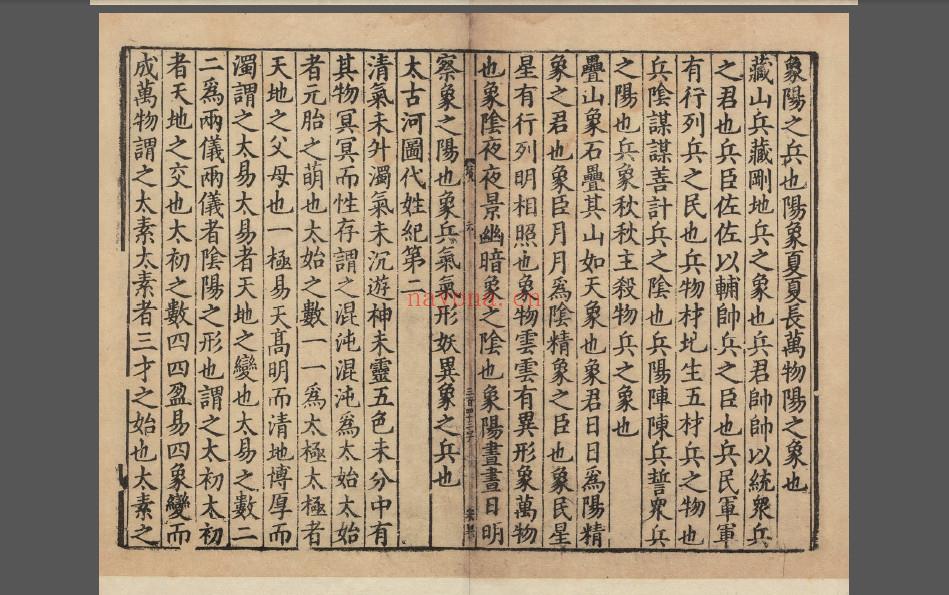 象陽之兵也陽象夏夏長萬物陽之象也
藏山兵藏剛地兵之象也兵君帥帥以統衆兵
之君也兵臣佐佐以輔帥兵之臣也兵民軍軍
有行列兵之民也兵物材地生五材兵之物也
兵陰謀謀善計兵之陰也兵陽陣陳兵誓衆兵
之陽也兵象秋秋主殺物兵之象也
疊山象石疊其山如天象也象君日日爲陽精
象之君也象臣月月爲陰精象之臣也象民星
星有行列明相照也象物雲雲有異形象萬物
也象陰夜夜景幽暗象之陰也象陽晝晝日明
六
三百四十三字
察象之陽也象兵氣氣形妖異象之兵也
太古河圖代姓紀第二
清氣未升濁氣未沉遊神未靈五色未分中有
其物冥冥而性存謂之混沌混沌爲太始太始
者元胎之萌也太始之數一一爲太極太極者
天地之父母也一極易天髙明而清地博厚而
濁謂之太易太易者天地之變也太易之數二
二爲兩儀兩儀者陰陽之形也謂之太初太初
者天地之交也太初之數四四盈易四象變而
成萬物謂之太素太素者三才之始也太素之
nayona.cn